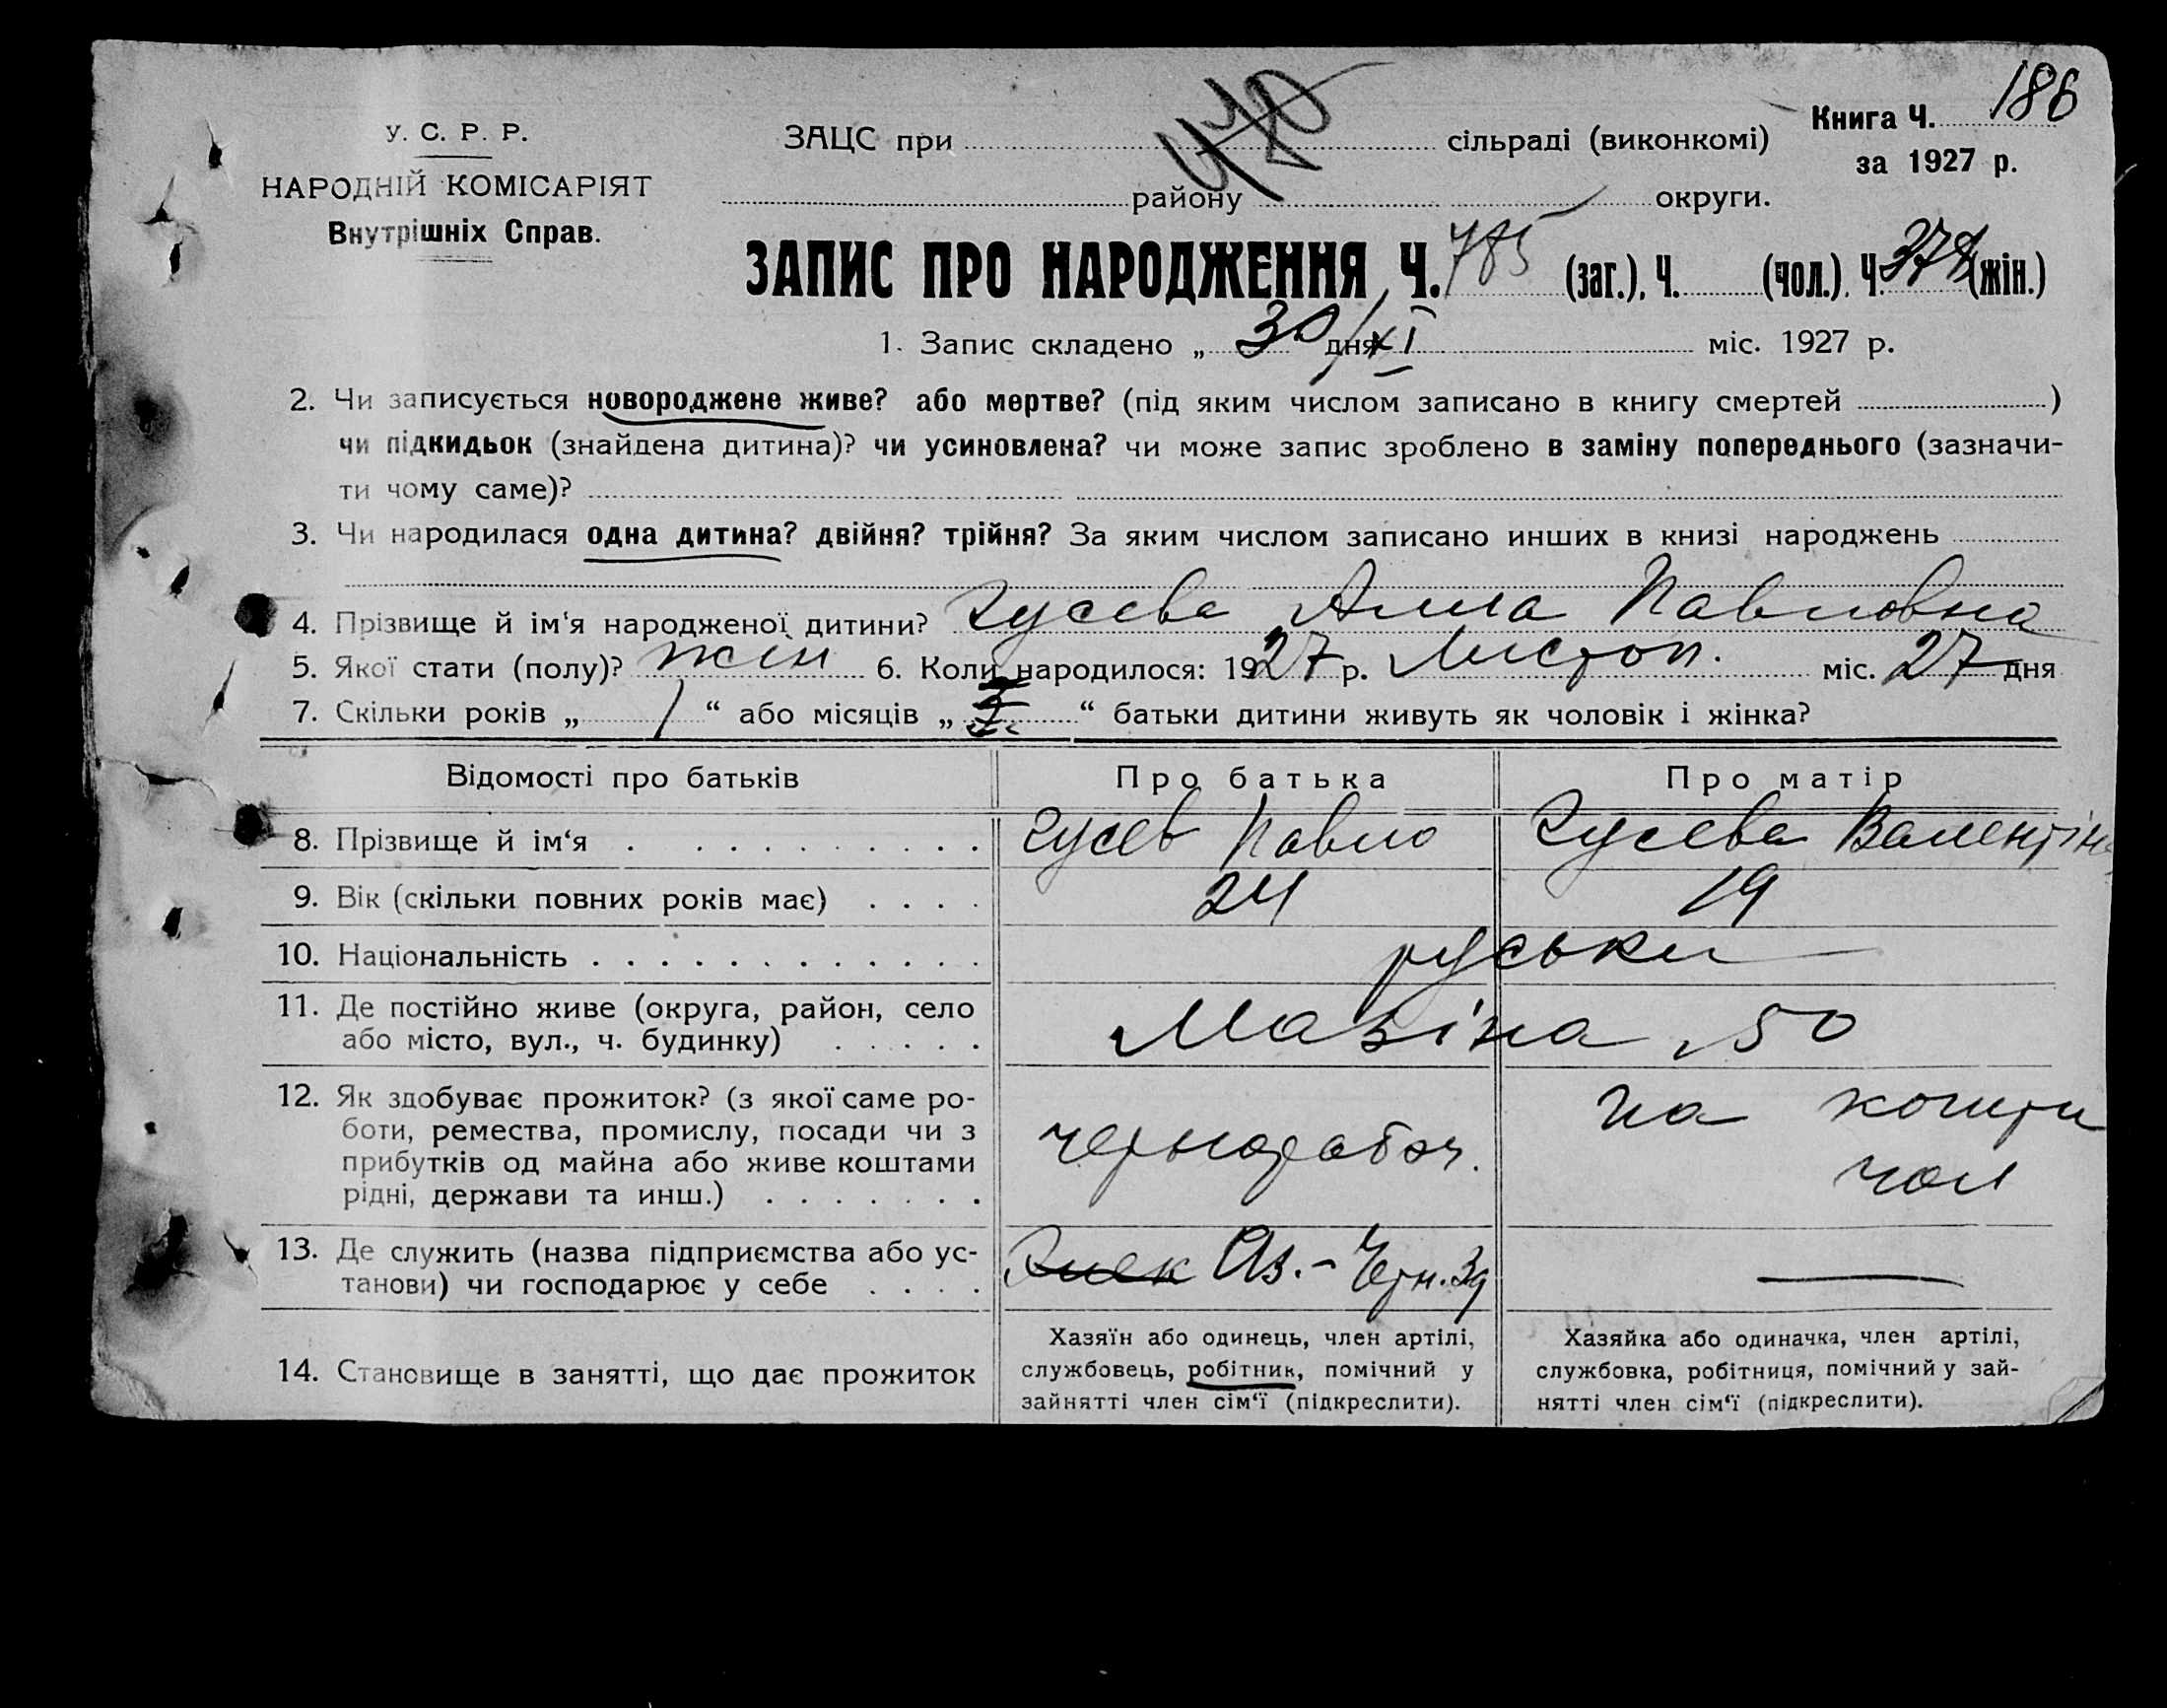 186
Книга Ч.
за 1927 р.
У. С. Р. Р.
НАРОДНІЙ КОМІСАРІЯТ
Внутрішніх Справ.
ЗАЦС при сільраді (виконкомі)
району округи.
ЗАПИС ПРО НАРОДЖЕННЯ Ч. 785 (заг.), Ч. (чол.). Ч. 378 (жін.)
1. Запис складено „ 30 дня XI міс. 1927 р.
2. Чи записується новороджене живе? або мертве? (під яким числом записано в книгу смертей )
чи підкидьок (знайдена дитина)? чи усиновлена? чи може запис зроблено в заміну попереднього (зазначи-
ти чому саме)?
3. Чи народилася одна дитина? двійня? трійня? За яким числом записано инших в книзі народжень
4. Прізвище й ім‘я народженої дитини? Гусева Алла Павловна
5. Якої стати (полу)? жін 6. Коли народилося: 1927 р. Листоп. міс. 27 дня
7. Скільки років „ 1 “ або місяців „ “ батьки дитини живуть як чоловік і жінка?
Відомості про батьків Про батька Про матір
8. Прізвище й ім‘я Гусев Павло Гусева Валентін
9. Вік (скільки повних років має) 24 19
10. Національність руськи
11. Де постійно живе (округа, район, село
або місто, вул., ч. будинку) 50
12. Як здобуває прожиток? (з якої саме ро-
боти, ремества, промислу, посади чи з
прибутків од майна або живе коштами
рідні, держави та инш.)
чернорабоч.
на кошти
чол
13. Де служить (назва підприємства або ус-
танови) чи господарює у себе
Аз.- Черн. Зд
14. Становище в занятті, що дає прожиток
Хазяїн або одинець, член артілі,
службовець, робітник, помічний у
зайнятті член сім‘ї (підкреслити).
Хазяйка або одиначка, член артілі,
службовка, робітниця, помічний у зай-
нятті член сім‘ї (підкреслити).